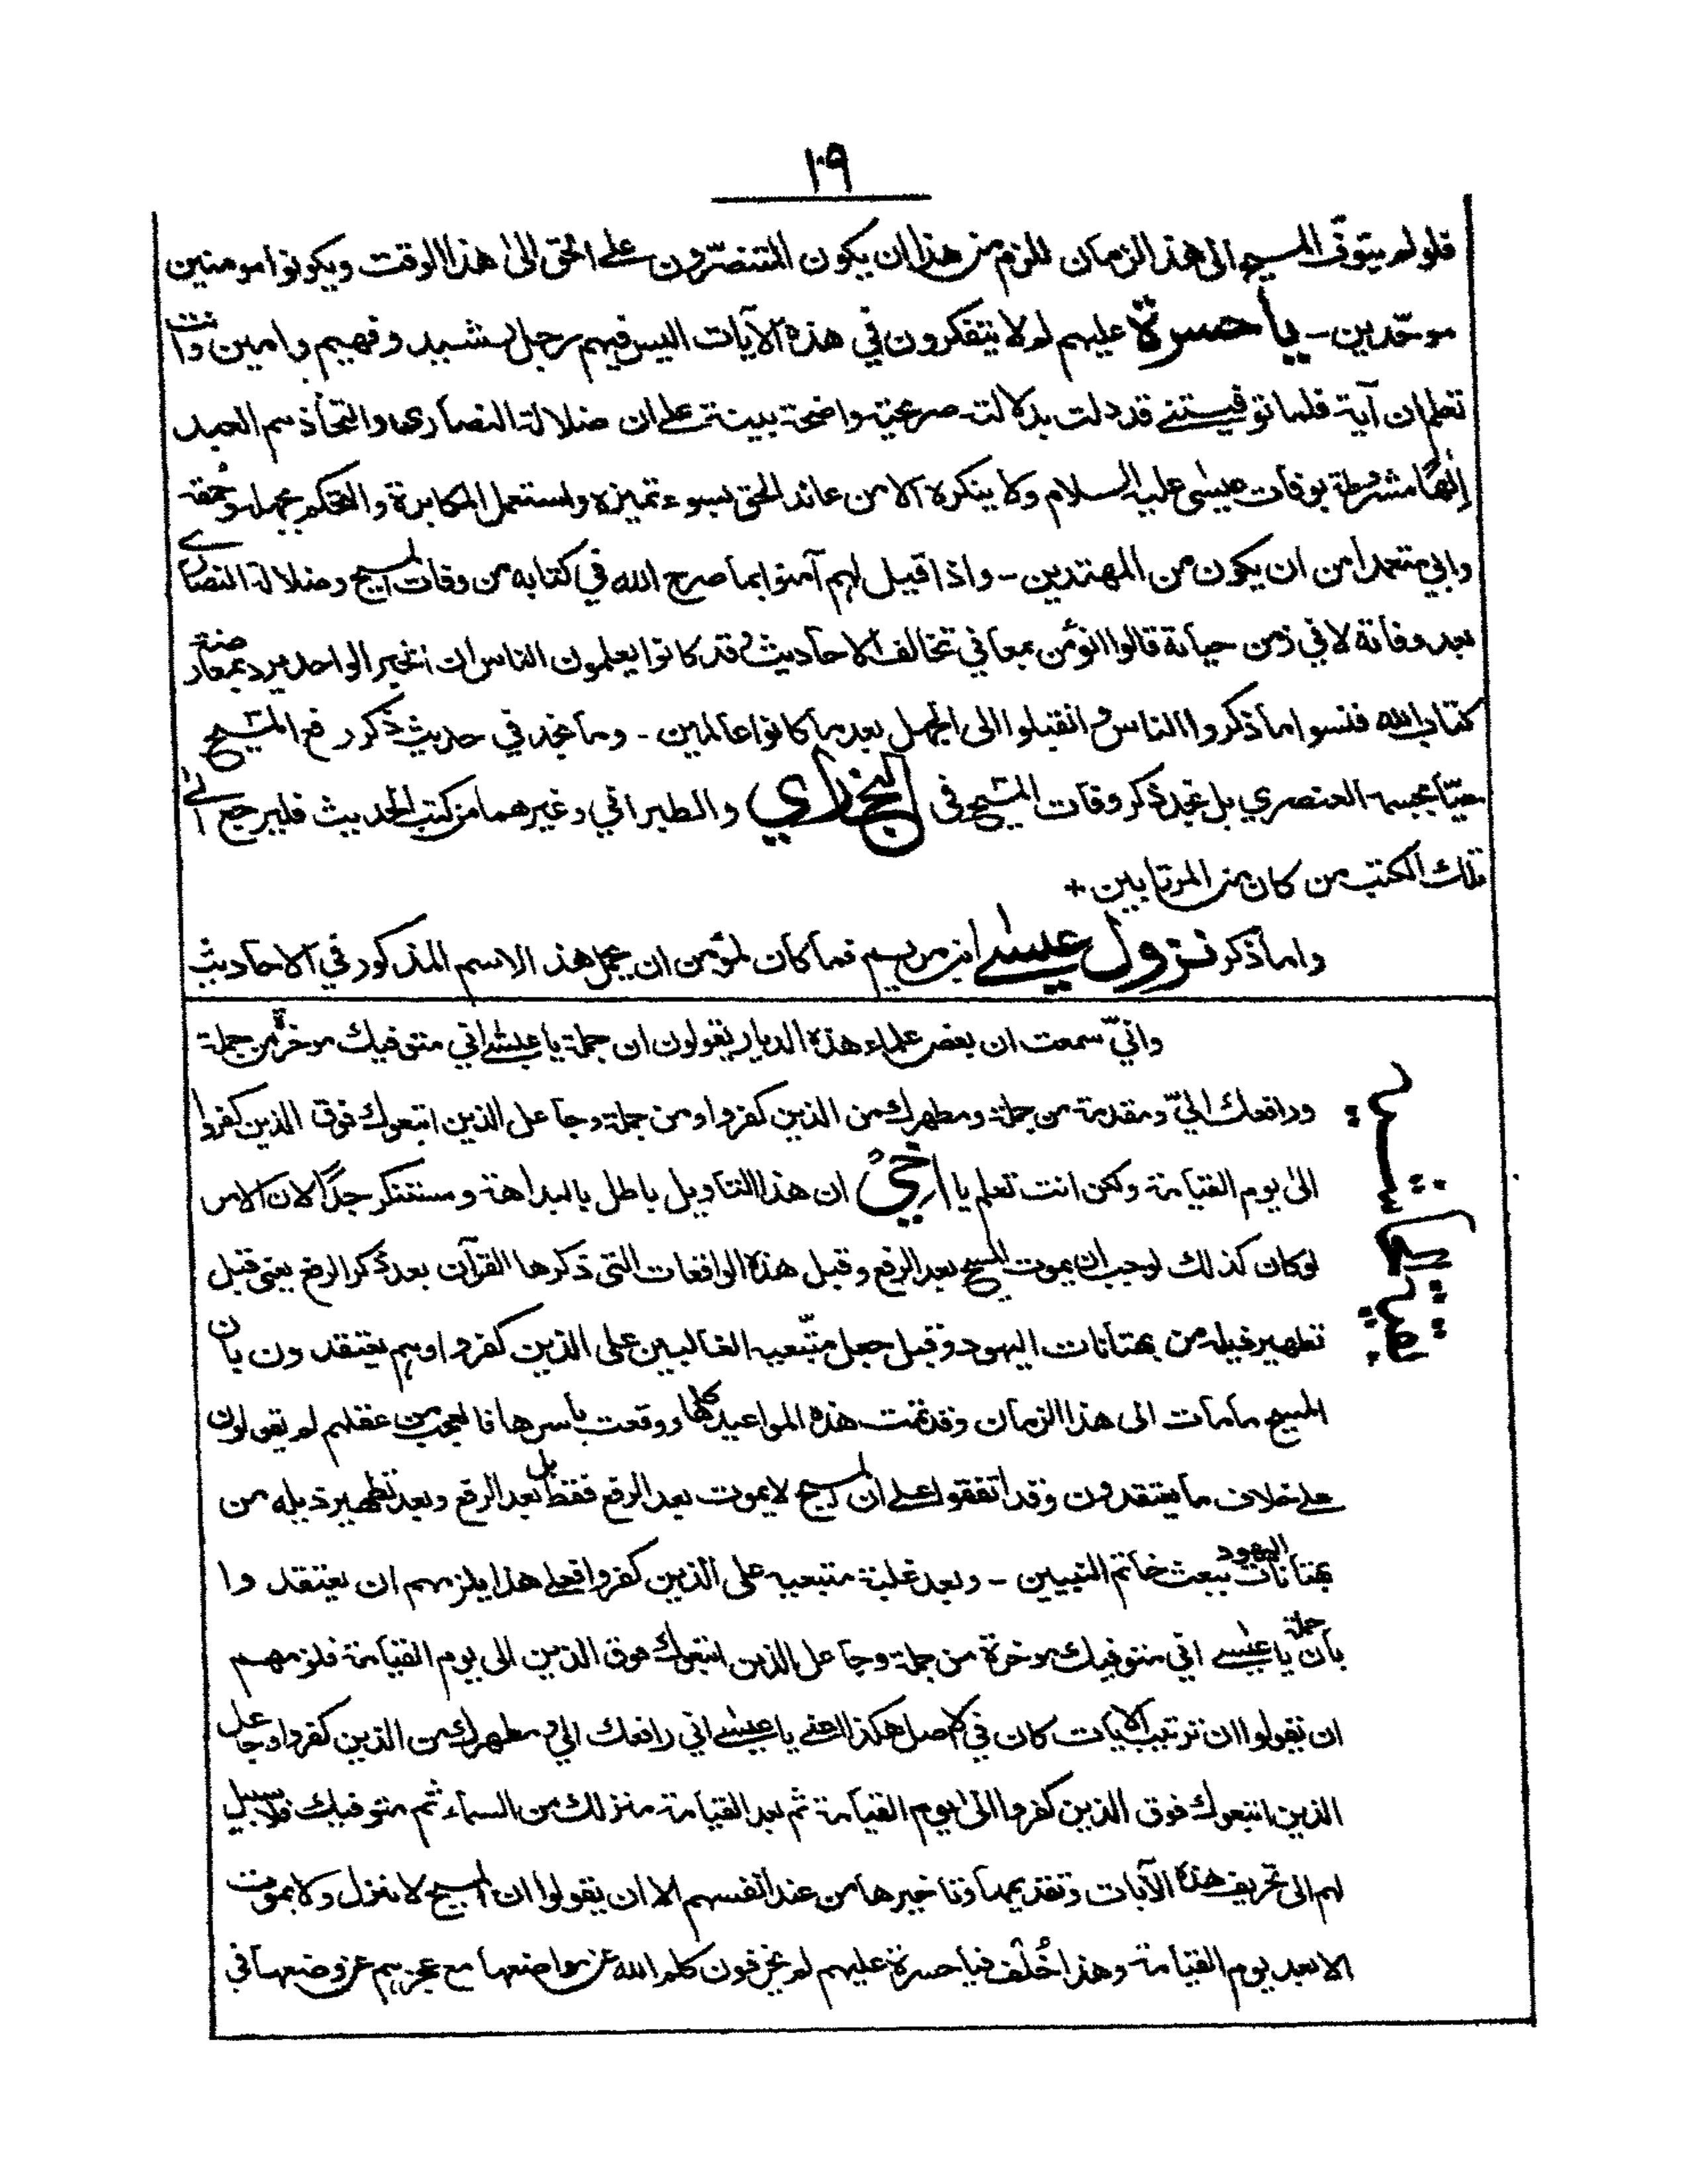 ١٩
فلو لم يتوف المسيح الى هذا الزمان للزم من هذا ان يكون المتنصّرون على الحق الى هذا الوقت ويكونوا مومنين
موحّدين ـ يا حسرة عليهم لم لا يتفكرون في هذه الآيات اليس فيهم رجل رشيد وفهيم وامين وانت
تعلم ان آية فلما توفيتني قد دلت بدلالة صريحة واضحة بينة على ان ضلالة النصارى واتخاذهم العبد
إلهًا مشروطة بوفات عيسى عليه السلام ولا ينكره الا من عاند الحق بسوء تميزه واستعمل المكابرة والتحكم بجهله وحمقه
وابي متعمدا من ان يكون من المهتدين ـ واذا قيل لهم آمنوا بما صرح الله في كتابه من وفات المسيح وضلالة النصارى
بعد وفاته لا في زمن حياته قالوا انؤمن بمعاني تخالف الاحاديث وقد كانوا يعلمون الناس ان الخبر الواحد يرد بمعارضة
كتاب الله فنسوا ما ذكروا الناس وانقلبوا الى الجهل بعد ما كانوا عالمين ـ وما نجد في حديث ذكر رفع المسيح
حيّا بجسمه العنصري بل نجد ذكر وفات المسيح في البخاري والطبراني وغيرهما من كتب الحديث فليرجع الى
تلك الكتب من كان من المرتابين +
واما ذكر نزول عيسى ابن مريم فما كان لمؤمن ان يحمل هذا الاسم المذكور في الاحاديث
وانّي سمعت ان بعض علماء هذه الديار يقولون ان جملة يا عيسى اني متوفيك موخرة من جملة
ورافعك اليّ ومقدمة من جملة ومطهرك من الذين كفروا ومن جملة وجاعل الذين اتبعوك فوق الذين كفروا
الى يوم القيامة ولكن انت تعلم يا اخي ان هذا التاويل باطل بالبداهة ومستنكر جدًّا لان الامر
لو كان كذلك لوجب ان يموت المسيح بعد الرفع وقبل هذه الواقعات التي ذكرها القرآن بعد ذكر الرفع يعني قبل
تطهير ذيله من بهتانات اليهود وقبل جعل متّبعيه الغالبين على الذين كفروا وهم يعتقدون بان
المسيح ما مات الى هذا الزمان وقد تمت هذه المواعيد كلها ووقعت باسرها فالعجب من عقلهم لم يقولون
على خلاف ما يعتقدون وقد اتفقوا على ان المسيح لا يموت بعد الرفع فقط بل بعد الرفع وبعد تطهير ذيله من
بهتانات اليهود ببعث خاتم النبيين ـ وبعد غلبة متبعيه على الذين كفروا فعلى هذا يلزمهم ان يعتقدوا
بان جملة يا عيسى اني متوفيك موخرة من جملة وجاعل الذين اتبعوك فوق الذين الى يوم القيامة فلزمهم
ان يقولوا ان ترتيب الايات كان في الاصل هكذا اعني يا عيسى اني رافعك الي ومطهرك من الذين كفروا وجاعل
الذين اتبعوك فوق الذين كفروا الى يوم القيامة ثم بعد القيامة منزلك من السماء ثم متوفيك فلا سبيل
لهم الى تحريف هذه الآيات وتقديمها وتاخيرها من عند انفسهم الا ان يقولوا ان المسيح لا ينزل ولا يموت
الا بعد يوم القيامة وهذا خُلف فيا حسرة عليهم لم يحرفون كلم الله عن مواضعها مع عجزهم عن وضعها في